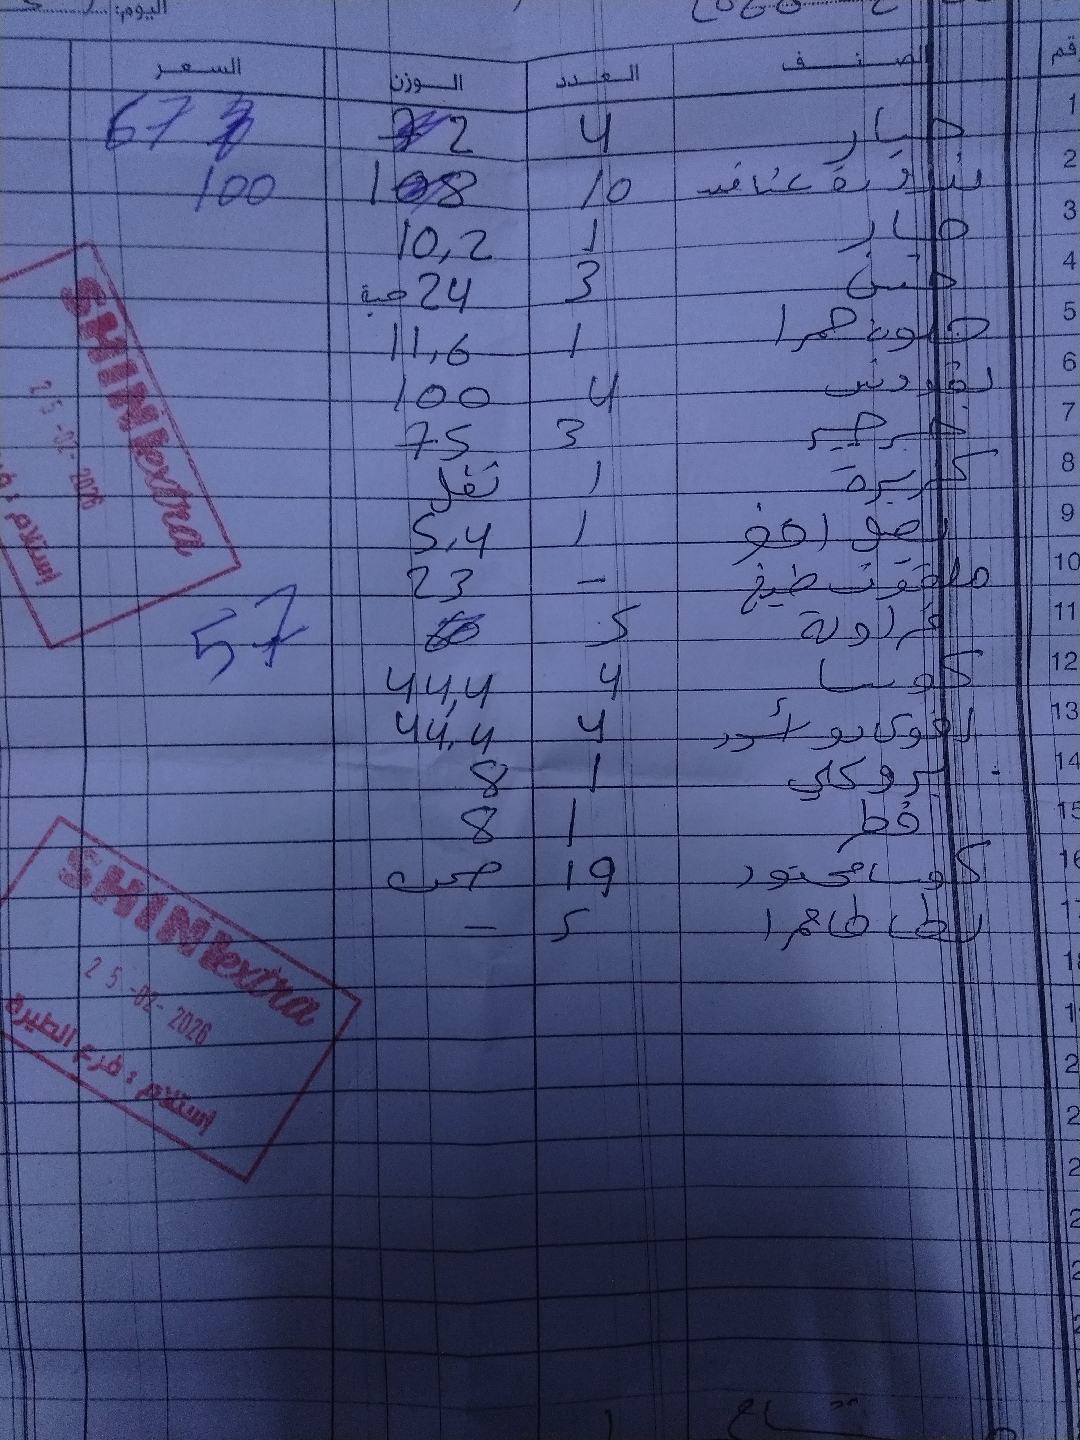 اليوم:
رقم الصنف العدد الوزن السعر
1 خيار 4 2 67
2 بندورة عناقيد 10 108 100
3 خيار 1 10,2
4 خس 3 24 حبة
5 حلوة حمرا 1 11,6
6 بقدونس 4 100
7 جرجير 3 75
8 كزبرة 1 ثقل
9 1 5,4
10 ملفوف طبيخ - 23
11 فراولة 5 57
12 كوسا 4 44,4
13 افوكادو 4 44,4
14 بروكلي 1 8
15 فطر 1 8
16 كوسا 19 صحن
17 بطاطا حمرا 5 -
SHINI extra
25-02-2026
استلام :
SHINI extra
25-02-2026
استلام : فرع الطيرة